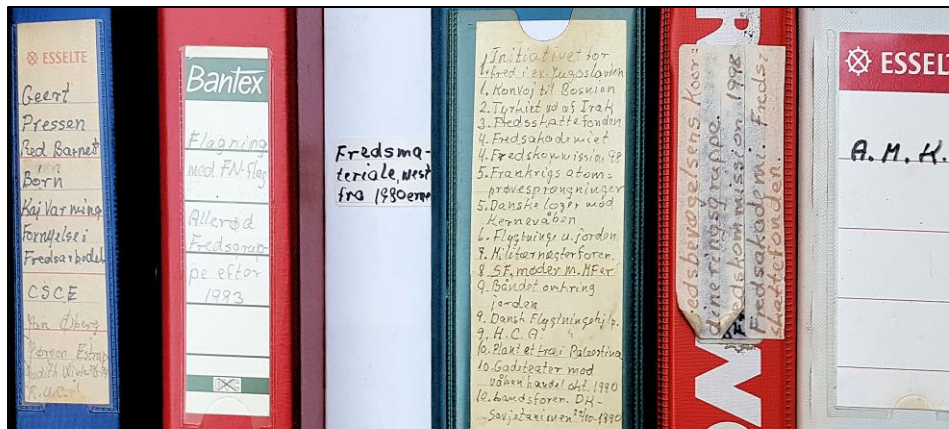 ESSELTE
Geert
Pressen
Red Barnet
Børn
Kaj Varming
Fornyelse i
Fredsarbejdet
CSCE
Jan Øberg
Jørgen Estrup
Judith Winter
Bantex
Flagning
med FN-flag
Allerød
Fredsgrup-
pe efter
1993
Fredsma-
teriale, mest
fra 1990erne
1. Initiativet for
fred i ex. Jugoslavien
1. Konvoj til Bosnien
2. Tyrkiet ud af Irak
3. Fredsskattefonden
4. Fredsakademiet
4. Fredskommission 98
5. Frankrigs atom=
prøvesprængninger
5. Danske læger mod
Kernevåben
6. Flygtninge u. jorden
8. Militærnægterforen.
8 SF. møder m. MFer
9. Båndet omkring
jorden
9. Dansk Flygtningehjlp.
9. H.C.A.
10. Plant et træ i Palestina
10. Gadeteater mod
våbenhandel okt. 1990
10. Landsforen. DK-
Sovjetunionen 1990
Fredsbevægelsens Koor=
dineringsgruppe.
Fredskommission 1998
Fredsakademi. Freds=
skattefonden.
ESSEL
A.M.K.